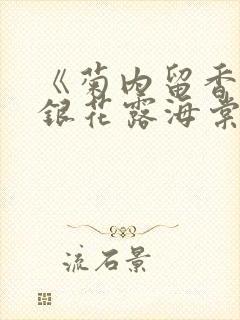 《菊内留香
銀花露海棠
流石景